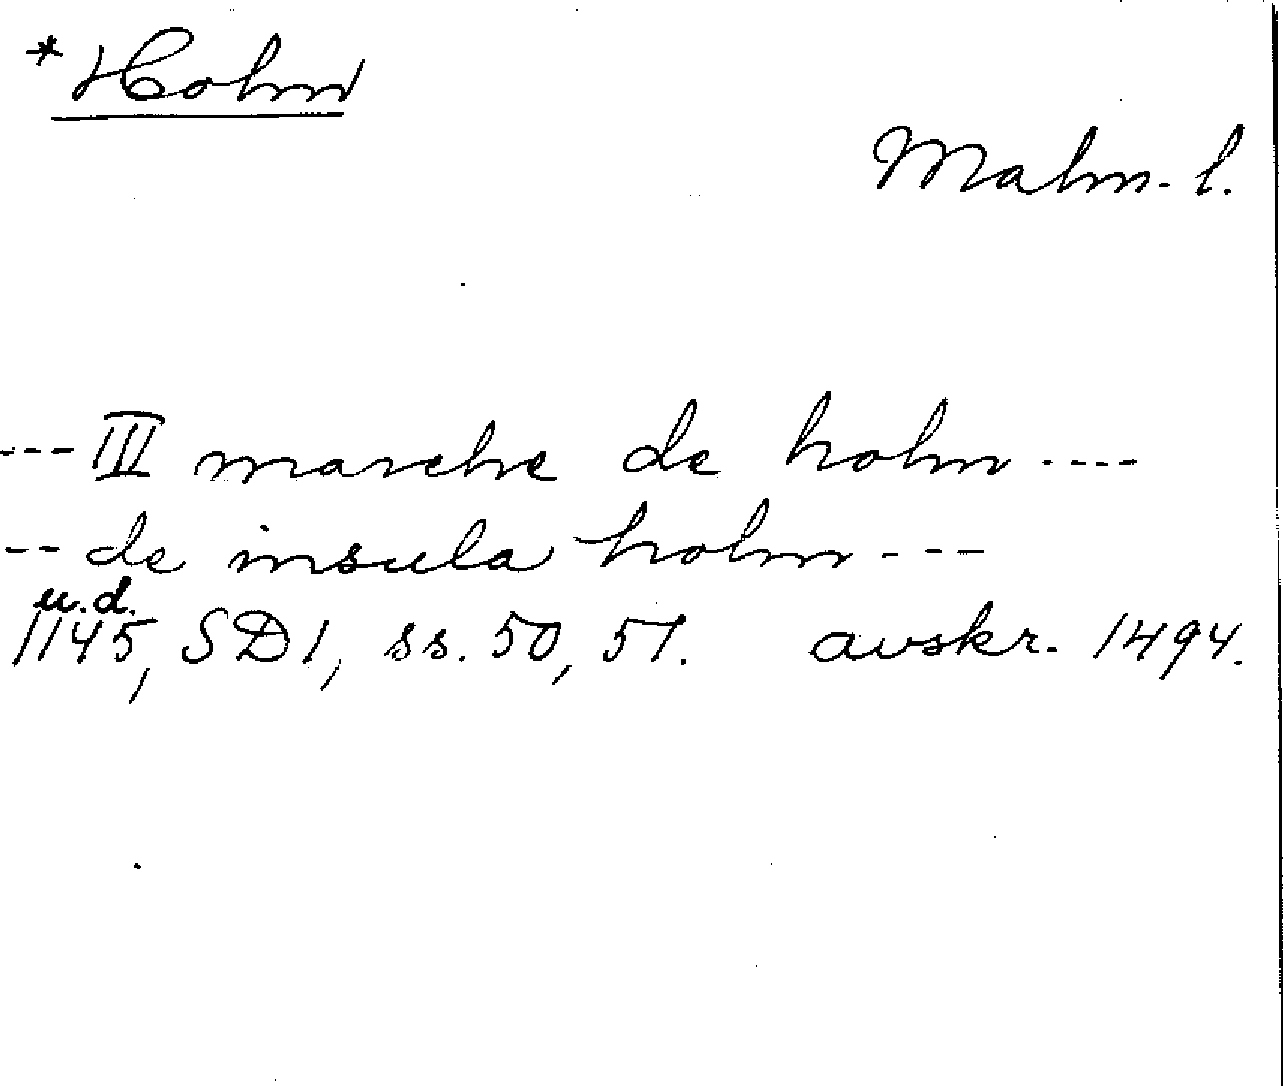 *Holm
Malm. l.
--- III marche de holm ----
-- de insula holm ---
u.d.
1145, SD1, ss. 50, 51. avskr. 1494.